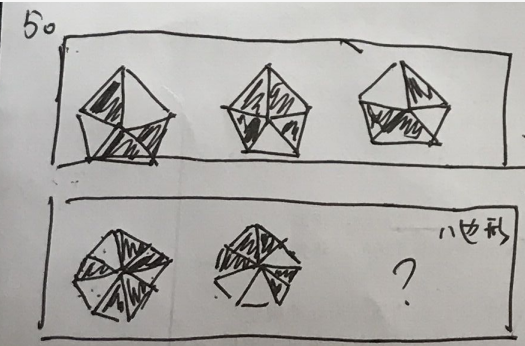 50
八边形
?